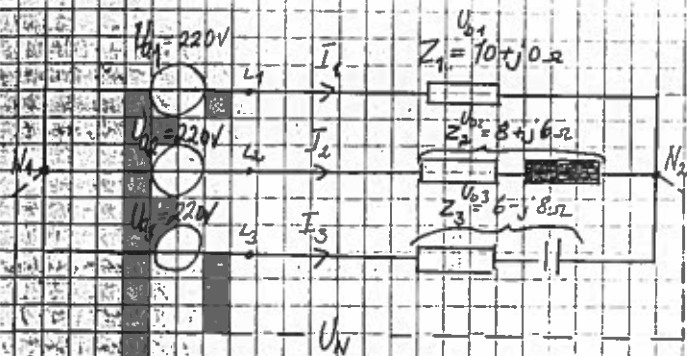 U01 = 220V
L1
I1
Ub1
Z1 = 10 + j0 Ω
N1
U02 = 220V
L2
I2
Ub2
Z2 = 8 + j6 Ω
N2
U03 = 220V
L3
I3
Ub3
Z3 = 6 - j8 Ω
UN